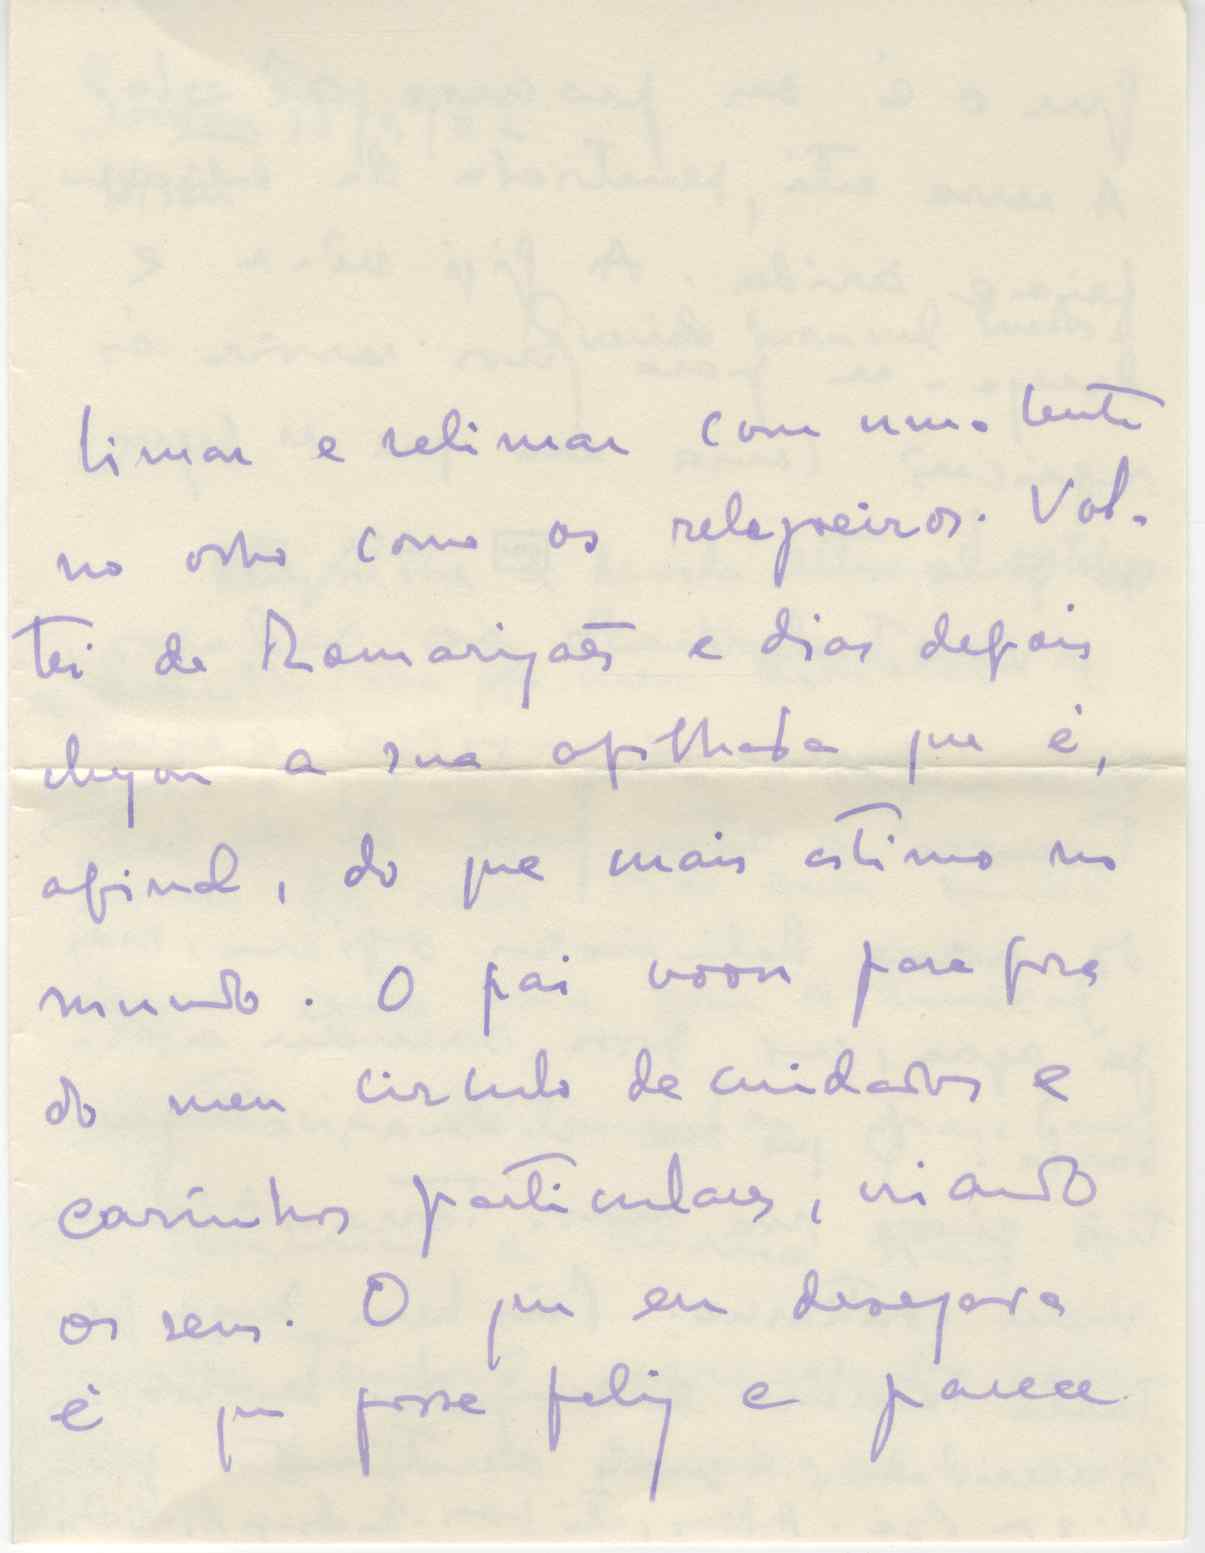 limar e relimar com uma lente
no olho como os relojoeiros. Vol-
tei de Romarigães e dias depois
chegou a sua afilhada que é,
afinal, do que mais estimo no
mundo. O pai voou para fora
do meu circulo de cuidados e
carinhos particulares, criando
os seus. O que eu desejava
é que fosse feliz e parece